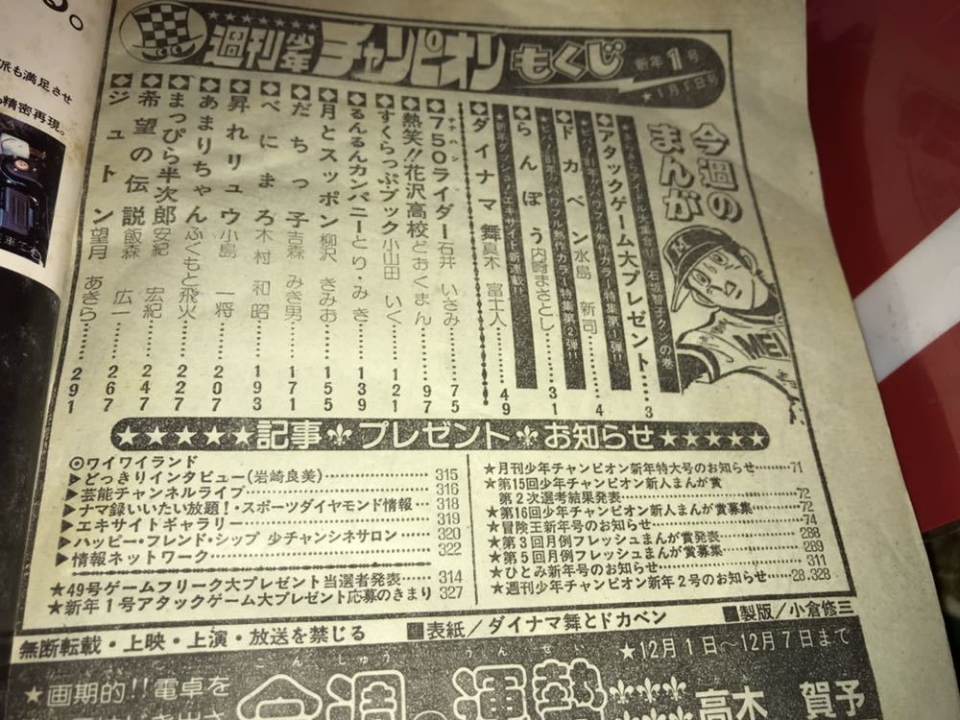 週刊少年チャンピオン もくじ 新年1号 ★1月1日号
今週の
まんが
アタックゲーム大プレゼント……3
◆ドカベン 水島 新司……4
◆らんぽう 内崎まさとし……31
◆ダイナマ舞 夏木 富士人……49
◆750ライダー 石井 いさみ……75
ナナハン
◆熱笑!!花沢高校 どおくまん……97
◆すくらっぷブック 小山田 いく……121
◆るんるんカンパニー とり・みき……139
◆月とスッポン 柳沢 きみお……155
◆だちっ子 吉森 みき男……171
◆べにまろ 木村 和昭……193
◆昇れリュウ 小島 一将……207
◆あまりちゃん ふくもと飛火……227
◆まっぴら半次郎 安紀 宏紀……247
◆希望の伝説 飯森 広一……267
◆ジュトン 望月 あきら……291
MEI
★★★★★記事 プレゼント お知らせ★★★★★
◎ワイワイランド
▶どっきりインタビュー(岩崎良美)……315
▶芸能チャンネルライブ……316
▶ナマ録いいたい放題!・スポーツダイヤモンド情報…318
▶エキサイトギャラリー……319
▶ハッピー・フレンド・シップ 少チャンシネサロン……320
▶情報ネットワーク……322
★49号ゲームフリーク大プレゼント当選者発表……314
★新年1号アタックゲーム大プレゼント応募のきまり 327
★月刊少年チャンピオン新年特大号のお知らせ……71
★第15回少年チャンピオン新人まんが賞
第2次選考結果発表……72
★第16回少年チャンピオン新人まんが賞募集……72
★冒険王新年号のお知らせ……74
★第3回月例フレッシュまんが賞発表……288
★第5回月例フレッシュまんが賞募集……289
★ひとみ新年号のお知らせ……311
★週刊少年チャンピオン新年2号のお知らせ……28.328
無断転載・上映・上演・放送を禁じる ■表紙/ダイナマ舞とドカベン ■製版/小倉修三
★画期的!!電卓を
こんしゅう うんせい
今週の運勢
★12月1日~12月7日まで
高木 賀予
派も満足させ
精密再現。